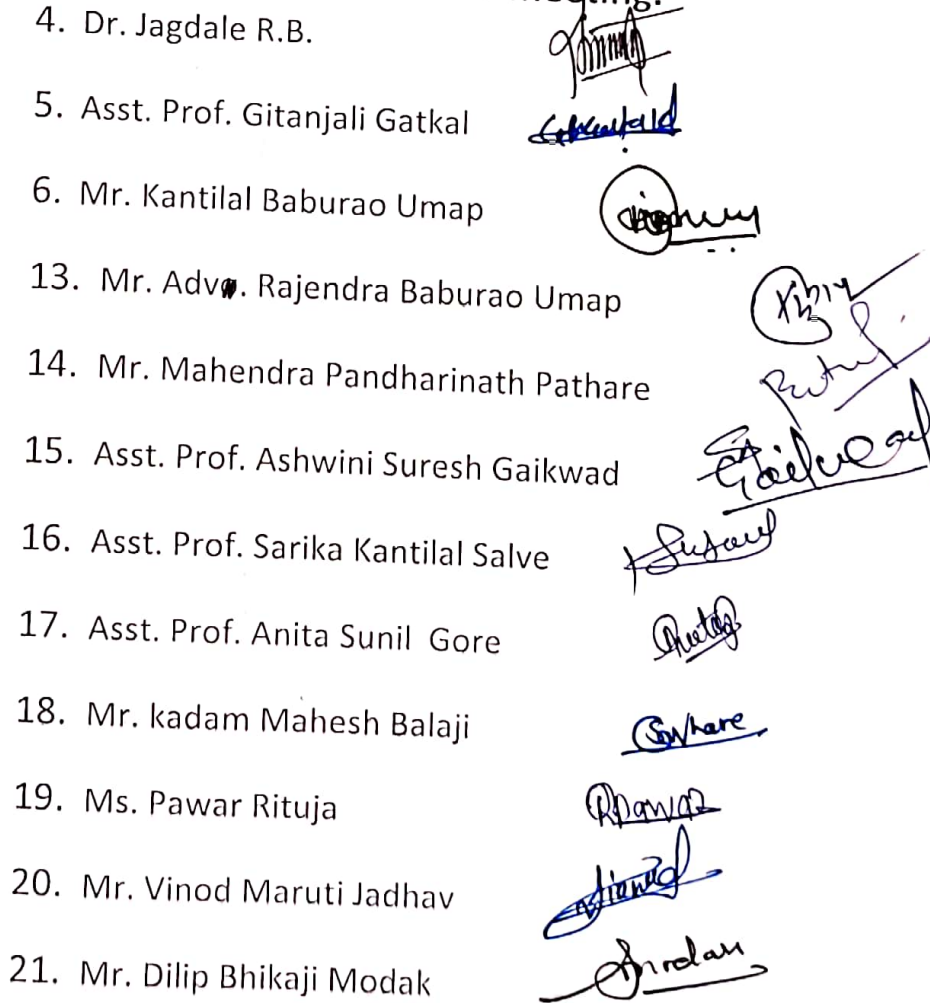 4. Dr. Jagdale R.B.
5. Asst. Prof. Gitanjali Gatkal
6. Mr. Kantilal Baburao Umap
13. Mr. Adv. Rajendra Baburao Umap
14. Mr. Mahendra Pandharinath Pathare
15. Asst. Prof. Ashwini Suresh Gaikwad
16. Asst. Prof. Sarika Kantilal Salve
17. Asst. Prof. Anita Sunil Gore
18. Mr. kadam Mahesh Balaji
19. Ms. Pawar Rituja RPawar
20. Mr. Vinod Maruti Jadhav
21. Mr. Dilip Bhikaji Modak